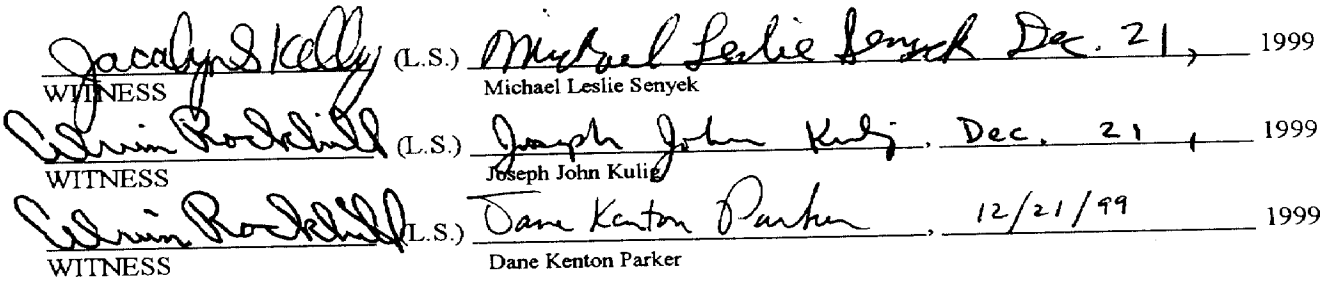 Jacalyn S Kelly (L.S.) Michael Leslie Senyek Dec. 21, 1999
WITNESS Michael Leslie Senyek
Edwin Rockhill (L.S.) Joseph John Kulig, Dec. 21, 1999
WITNESS Joseph John Kulig
Edwin Rockhill (L.S.) Dane Kenton Parker, 12/21/99 1999
WITNESS Dane Kenton Parker